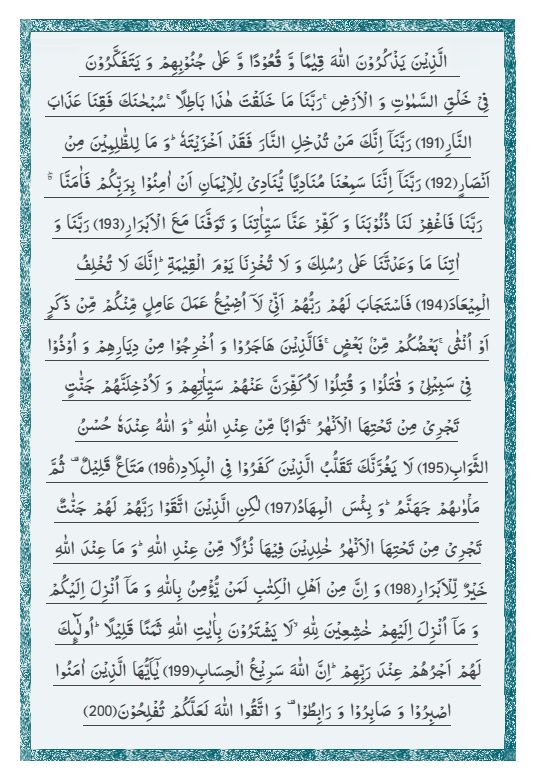 الَّذِیْنَ یَذْكُرُوْنَ اللّٰهَ قِیٰمًا وَّ قُعُوْدًا وَّ عَلٰى جُنُوْبِهِمْ وَ یَتَفَكَّرُوْنَ
فِیْ خَلْقِ السَّمٰوٰتِ وَ الْاَرْضِۚ-رَبَّنَا مَا خَلَقْتَ هٰذَا بَاطِلًاۚ-سُبْحٰنَكَ فَقِنَا عَذَابَ
النَّارِ(191) رَبَّنَاۤ اِنَّكَ مَنْ تُدْخِلِ النَّارَ فَقَدْ اَخْزَیْتَهٗؕ-وَ مَا لِلظّٰلِمِیْنَ مِنْ
اَنْصَارٍ(192) رَبَّنَاۤ اِنَّنَا سَمِعْنَا مُنَادِیًا یُّنَادِیْ لِلْاِیْمَانِ اَنْ اٰمِنُوْا بِرَبِّكُمْ فَاٰمَنَّا ﳓ
رَبَّنَا فَاغْفِرْ لَنَا ذُنُوْبَنَا وَ كَفِّرْ عَنَّا سَیِّاٰتِنَا وَ تَوَفَّنَا مَعَ الْاَبْرَارِ(193) رَبَّنَا وَ
اٰتِنَا مَا وَعَدْتَّنَا عَلٰى رُسُلِكَ وَ لَا تُخْزِنَا یَوْمَ الْقِیٰمَةِؕ-اِنَّكَ لَا تُخْلِفُ
الْمِیْعَادَ(194) فَاسْتَجَابَ لَهُمْ رَبُّهُمْ اَنِّیْ لَاۤ اُضِیْعُ عَمَلَ عَامِلٍ مِّنْكُمْ مِّنْ ذَكَرٍ
اَوْ اُنْثٰىۚ-بَعْضُكُمْ مِّنْۢ بَعْضٍۚ-فَالَّذِیْنَ هَاجَرُوْا وَ اُخْرِجُوْا مِنْ دِیَارِهِمْ وَ اُوْذُوْا
فِیْ سَبِیْلِیْ وَ قٰتَلُوْا وَ قُتِلُوْا لَاُكَفِّرَنَّ عَنْهُمْ سَیِّاٰتِهِمْ وَ لَاُدْخِلَنَّهُمْ جَنّٰتٍ
تَجْرِیْ مِنْ تَحْتِهَا الْاَنْهٰرُۚ-ثَوَابًا مِّنْ عِنْدِ اللّٰهِؕ-وَ اللّٰهُ عِنْدَهٗ حُسْنُ
الثَّوَابِ(195) لَا یَغُرَّنَّكَ تَقَلُّبُ الَّذِیْنَ كَفَرُوْا فِی الْبِلَادِ(196) مَتَاعٌ قَلِیْلٌ- ثُمَّ
مَاْوٰىهُمْ جَهَنَّمُؕ-وَ بِئْسَ الْمِهَادُ(197) لٰكِنِ الَّذِیْنَ اتَّقَوْا رَبَّهُمْ لَهُمْ جَنّٰتٌ
تَجْرِیْ مِنْ تَحْتِهَا الْاَنْهٰرُ خٰلِدِیْنَ فِیْهَا نُزُلًا مِّنْ عِنْدِ اللّٰهِؕ-وَ مَا عِنْدَ اللّٰهِ
خَیْرٌ لِّلْاَبْرَارِ(198) وَ اِنَّ مِنْ اَهْلِ الْكِتٰبِ لَمَنْ یُّؤْمِنُ بِاللّٰهِ وَ مَاۤ اُنْزِلَ اِلَیْكُمْ
وَ مَاۤ اُنْزِلَ اِلَیْهِمْ خٰشِعِیْنَ لِلّٰهِۙ-لَا یَشْتَرُوْنَ بِاٰیٰتِ اللّٰهِ ثَمَنًا قَلِیْلًاؕ-اُولٰٓىٕكَ
لَهُمْ اَجْرُهُمْ عِنْدَ رَبِّهِمْؕ-اِنَّ اللّٰهَ سَرِیْعُ الْحِسَابِ(199) یٰۤاَیُّهَا الَّذِیْنَ اٰمَنُوا
اصْبِرُوْا وَ صَابِرُوْا وَ رَابِطُوْا- وَ اتَّقُوا اللّٰهَ لَعَلَّكُمْ تُفْلِحُوْنَ(200)